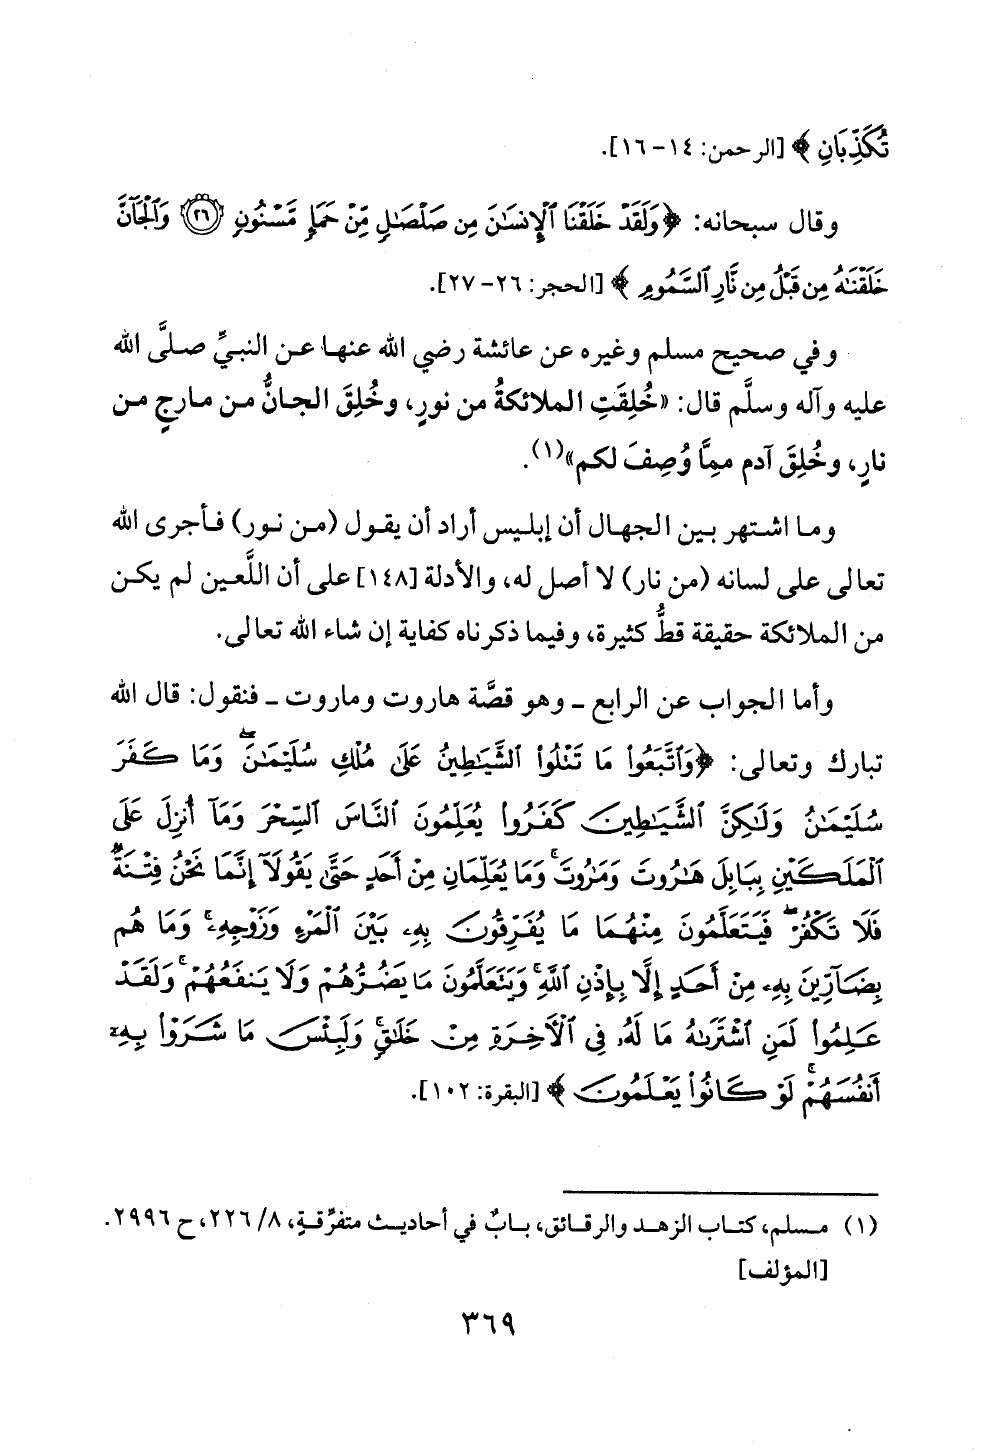 تُكَذِّبَانِ ﴾ [الرحمن: ١٤-١٦].
وقال سبحانه: ﴿وَلَقَدْ خَلَقْنَا ٱلْإِنسَٰنَ مِن صَلْصَٰلٍ مِّنْ حَمَإٍ مَّسْنُونٍ ٢٦ وَٱلْجَآنَّ
خَلَقْنَٰهُ مِن قَبْلُ مِن نَّارِ ٱلسَّمُومِ ﴾ [الحجر: ٢٦-٢٧].
وفي صحيح مسلم وغيره عن عائشة رضي الله عنها عن النبيِّ صلَّى الله
عليه وآله وسلَّم قال: «خُلِقَتِ الملائكةُ من نورٍ، وخُلِقَ الجانُّ من مارجٍ من
نارٍ، وخُلِقَ آدم ممَّا وُصِفَ لكم»(١).
وما اشتهر بين الجهال أن إبليس أراد أن يقول (من نور) فأجرى الله
تعالى على لسانه (من نار) لا أصل له، والأدلة [١٤٨] على أن اللَّعين لم يكن
من الملائكة حقيقة قطُّ كثيرة، وفيما ذكرناه كفاية إن شاء الله تعالى.
وأما الجواب عن الرابع ـ وهو قصَّة هاروت وماروت ـ فنقول: قال الله
تبارك وتعالى: ﴿وَٱتَّبَعُوا۟ مَا تَتْلُوا۟ ٱلشَّيَٰطِينُ عَلَىٰ مُلْكِ سُلَيْمَٰنَ ۖ وَمَا كَفَرَ
سُلَيْمَٰنُ وَلَٰكِنَّ ٱلشَّيَٰطِينَ كَفَرُوا۟ يُعَلِّمُونَ ٱلنَّاسَ ٱلسِّحْرَ وَمَآ أُنزِلَ عَلَى
ٱلْمَلَكَيْنِ بِبَابِلَ هَٰرُوتَ وَمَٰرُوتَ ۚ وَمَا يُعَلِّمَانِ مِنْ أَحَدٍ حَتَّىٰ يَقُولَآ إِنَّمَا نَحْنُ فِتْنَةٌ
فَلَا تَكْفُرْ ۖ فَيَتَعَلَّمُونَ مِنْهُمَا مَا يُفَرِّقُونَ بِهِۦ بَيْنَ ٱلْمَرْءِ وَزَوْجِهِۦ ۚ وَمَا هُم
بِضَآرِّينَ بِهِۦ مِنْ أَحَدٍ إِلَّا بِإِذْنِ ٱللَّهِ ۚ وَيَتَعَلَّمُونَ مَا يَضُرُّهُمْ وَلَا يَنفَعُهُمْ ۚ وَلَقَدْ
عَلِمُوا۟ لَمَنِ ٱشْتَرَىٰهُ مَا لَهُۥ فِى ٱلْءَاخِرَةِ مِنْ خَلَٰقٍ ۚ وَلَبِئْسَ مَا شَرَوْا۟ بِهِۦٓ
أَنفُسَهُمْ ۚ لَوْ كَانُوا۟ يَعْلَمُونَ ﴾ [البقرة: ١٠٢].
(١) مسلم، كتاب الزهد والرقائق، بابٌ في أحاديث متفرِّقةٍ، ٨/ ٢٢٦، ح ٢٩٩٦.
[المؤلف]
٣٦٩